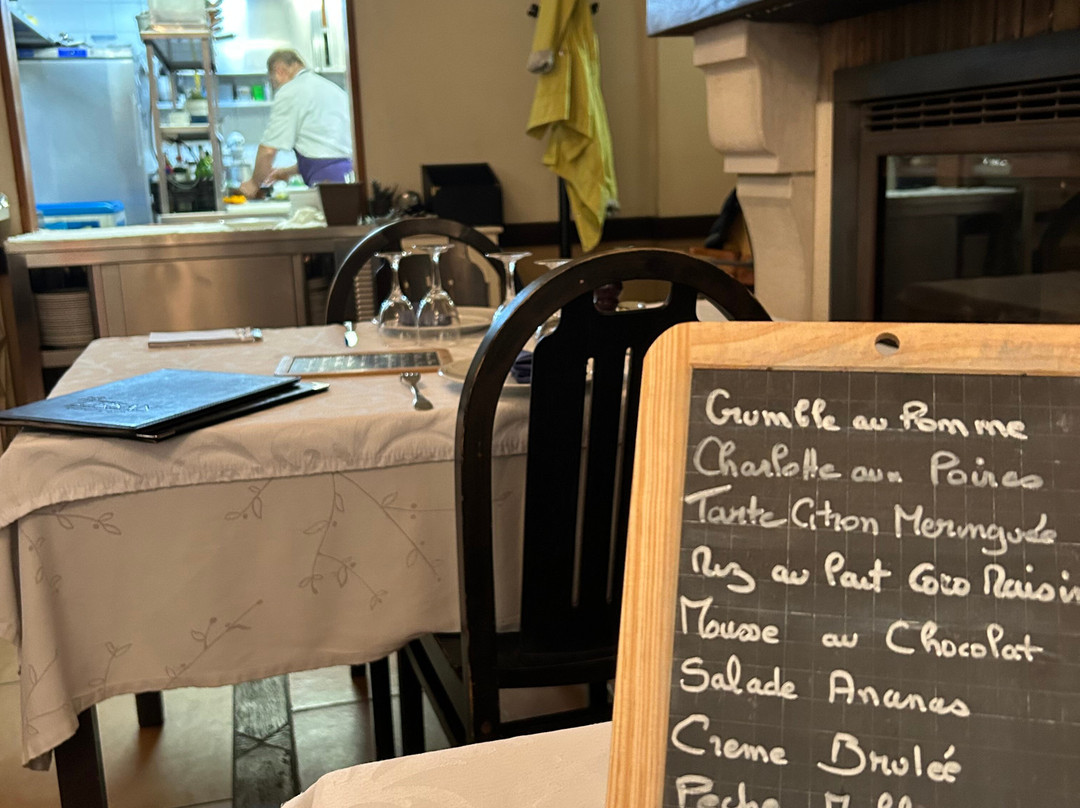 Crumble au Pomme
Charlotte aux Poires
Tarte Citron Meringuée
Riz au Lait Coco Raisin
Mousse au Chocolat
Salade Ananas
Creme Brulée
Peche